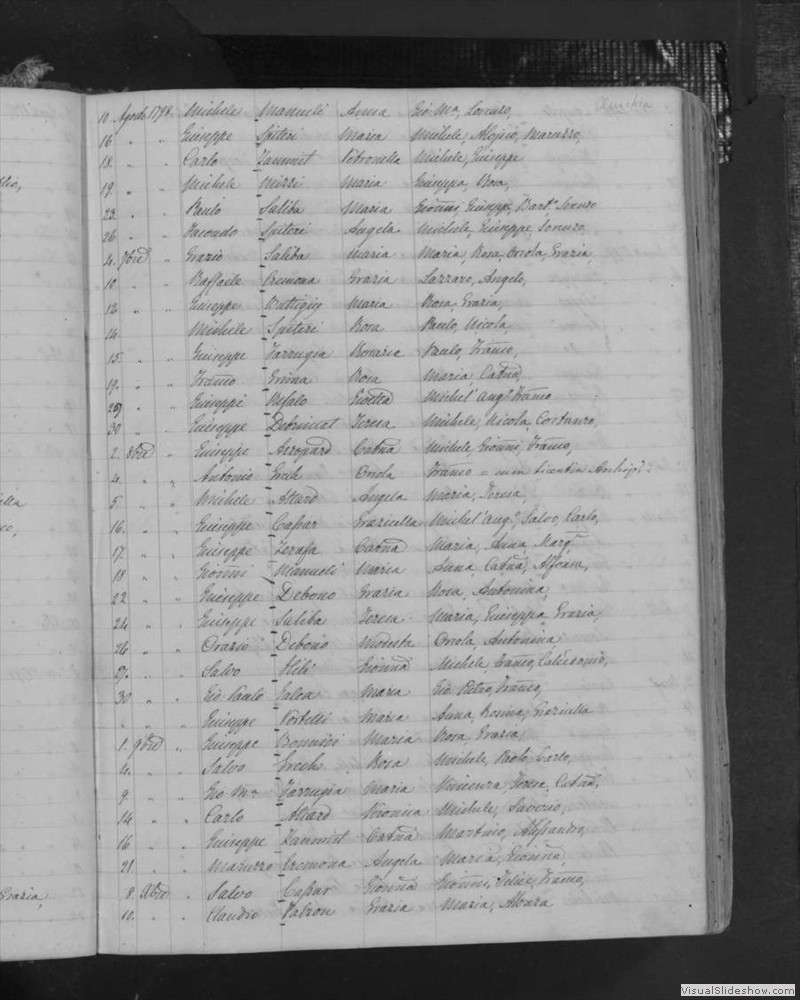 10. Agosto 1798. Michele Manueli Anna Gio Ma, Lorenzo,
16 " " Giuseppe Spiteri Maria Michele, Aloisio, Maruzzo,
18. " " Carlo Zammit Petronella Michele, Giuseppe
19. " " Michele Mizzi Maria Giuseppa, Rosa,
22. " " Paulo Saliba Maria Gioanni, Giuseppe, Lorenzo
26. " " Spiteri Angela Michele, Giuseppe, Lorenzo,
4. 7bre " Grazio Saliba Maria Maria, Rosa, Oriola, Grazia
10. " " Raffaele Cremona Grazia Lazzaro, Angelo,
12 " " Giuseppe Buttigieg Maria Rosa, Grazia,
14. " " Michele Spiteri Rosa Paulo, Nicola,
15. " " Giuseppe Farrugia Rosaria Paulo, Franco,
19. " " Franco Rosa Maria, Catna
29 " " Giuseppe Michel' Ango Franco
30 " " Giuseppe Debrincat Teresa Michele, Nicola, Costanzo,
2. 8bre " Giuseppe Azzopard Catna Michele, Gionni, Franco,
4. " " Antonio Grech Oriola Franco = cum licentia
5. " " Michele Attard Angela Maria, Teresa,
16. " " Giuseppe Caspar Graziella Michel' Ango, Salvo, Carlo,
17. " " Giuseppe Zerafa Catna Maria, Anna, Marga,
18 " " Gionni Manueli Maria Anna, Catna, Alfonsa,
22 " " Giuseppe Debono Grazia Rosa, Antonina,
24 " " Giuseppe Saliba Teresa Maria, Giuseppa, Grazia,
26 " " Orazio Debono Modesta Oriola, Antonina
29. " " Salvo Hili Gionna Michele,
30 " " Gio Paulo Galea Maria Gio Pietro, Franco,
" " " Giuseppe Portelli Maria Anna, Rosina, Graziella
1. 9bre " Giuseppe Bonnici Maria Rosa, Grazia,
4. " " Salvo Grech Rosa Michele, Paolo, Carlo,
9 " " Gio Ma Farrugia Maria Vincenza, Teresa, Catna,
14 " " Carlo Attard Veronica Michele, Saverio,
16 " " Giuseppe Zammit Catna Martino, Alessandro,
21. " " Maruzzo Cremona Angela Maria, Gionna,
8. Xbre " Salvo Caspar Gionna Gionni, Felice, Franco,
10. " " Claudio Grazia Maria, Alonza
Grazia,
VisualSlideshow.com